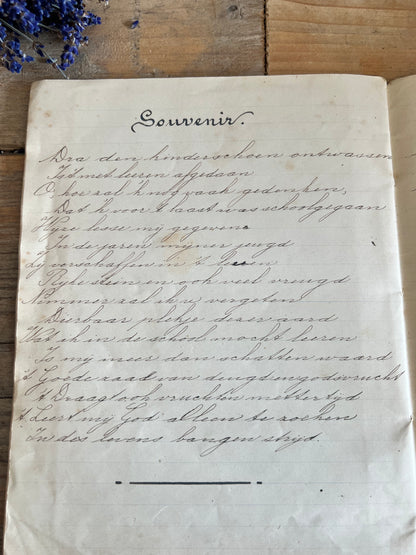 Souvenir.
Dra den kinderschoen ontwassen
Is 't met leeren afgedaan
O, hoe zal 'k nog vaak gedenken,
Dat 'k voor 't laatst was schoolgegaan
Wyze lesse my gegeven
In de jaren mijner jeugd
Zy verschaffen in 't leven
Ryke stein en ook veel vreugd
Nimmer zal ik u vergeten
Dierbaar plekje dezer aard
Wat ik in de school mocht leeren
Is my meer dan schatten waard
't Goede zaad van deugd en godsvrucht
't Draagt ook vruchten mettertyd
't Leert my God alleen te zoeken
In des levens bangen stryd.